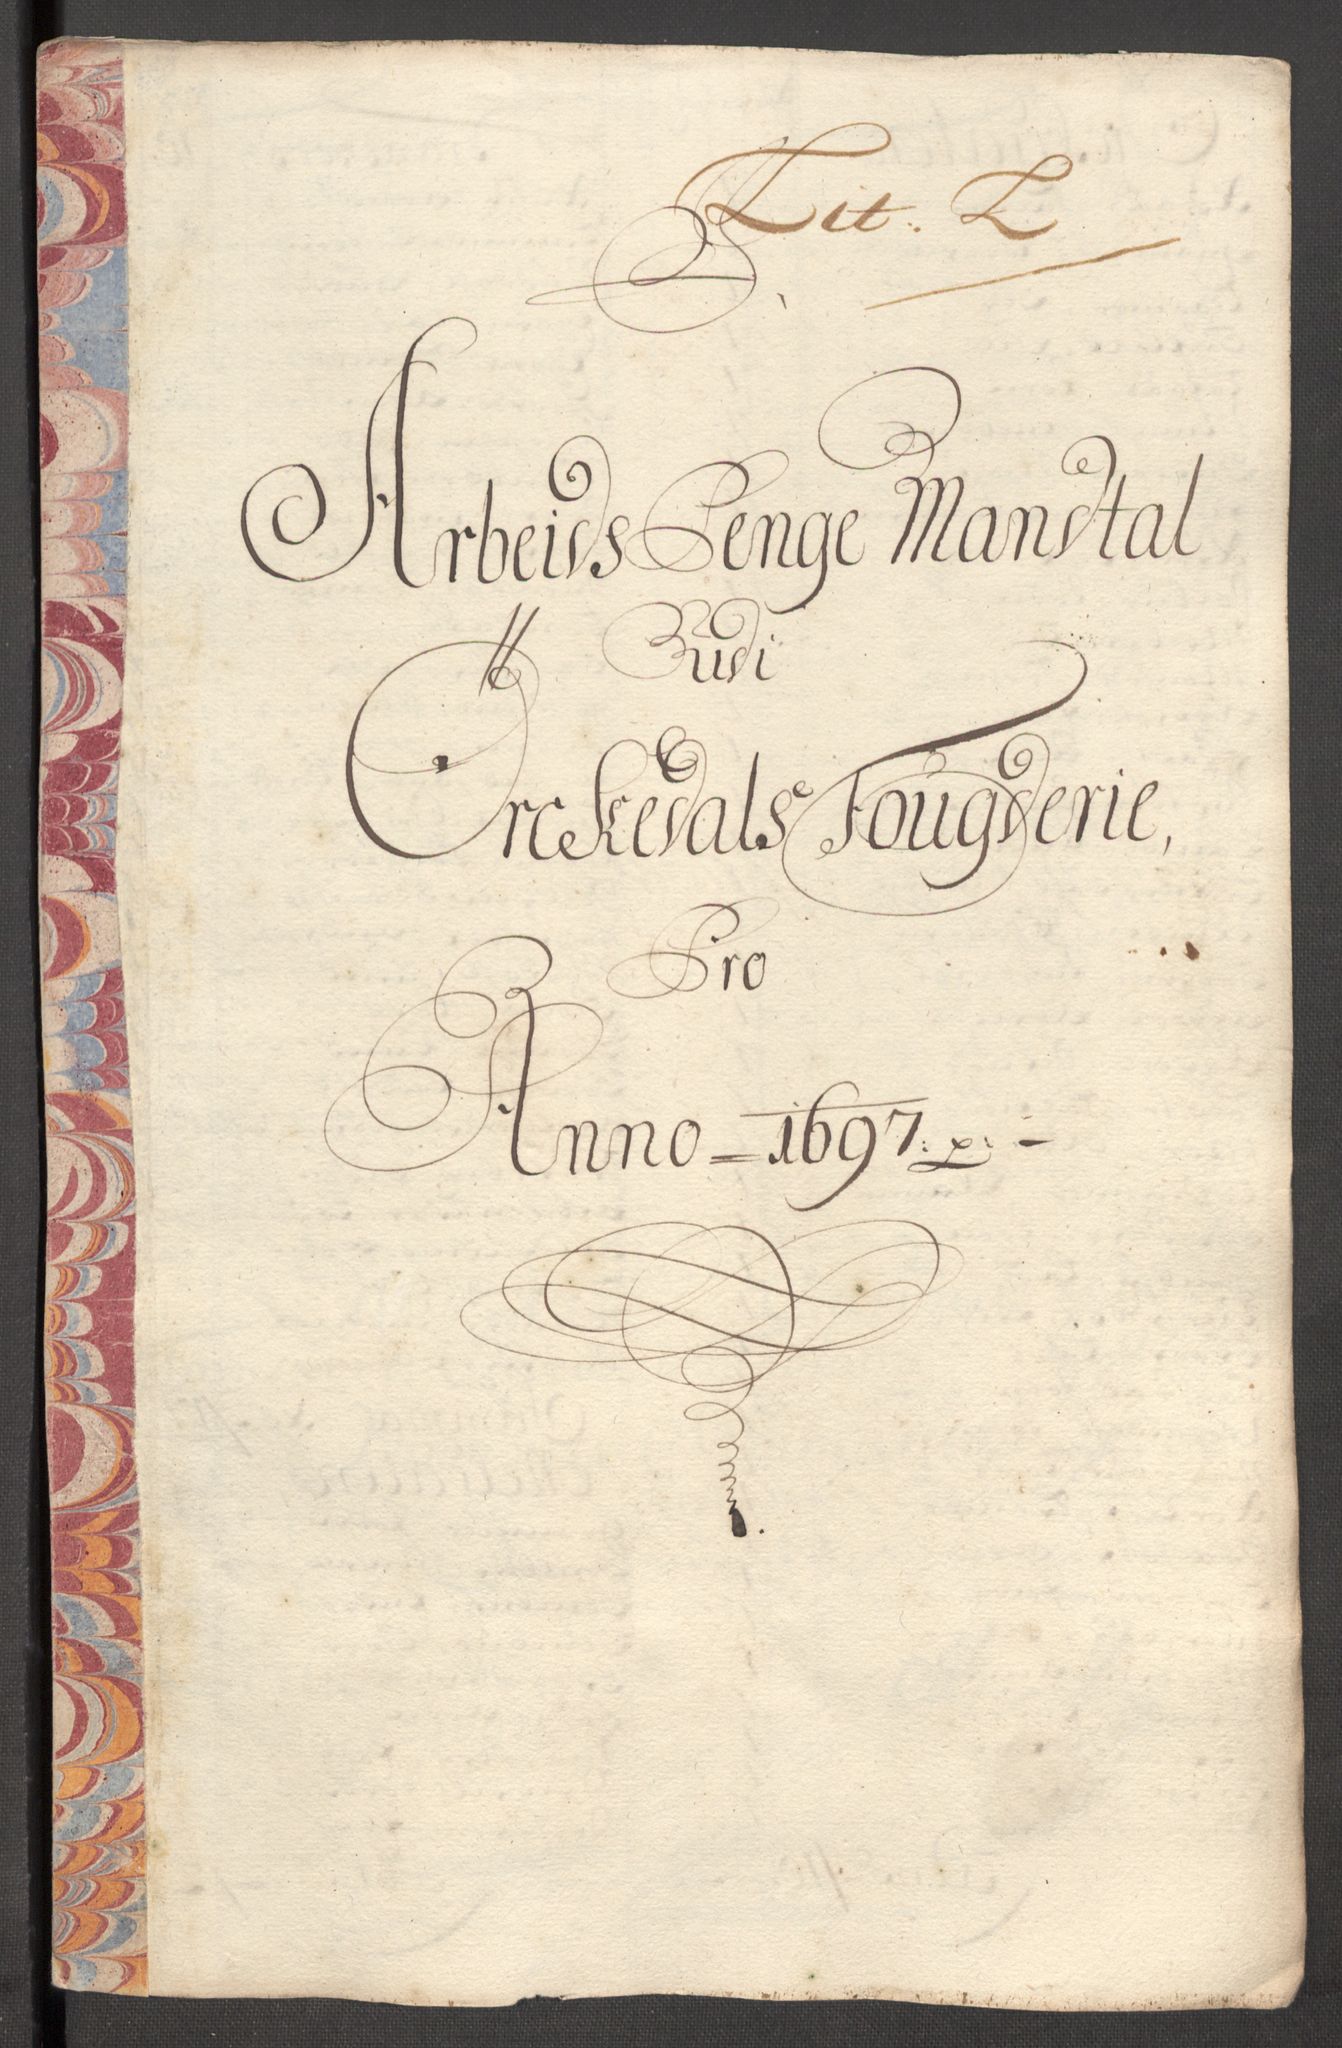 Lit. L
Arbeids Penge Mandtal
Udi
Orckedals Fougderie,
Pro
Anno = 1697